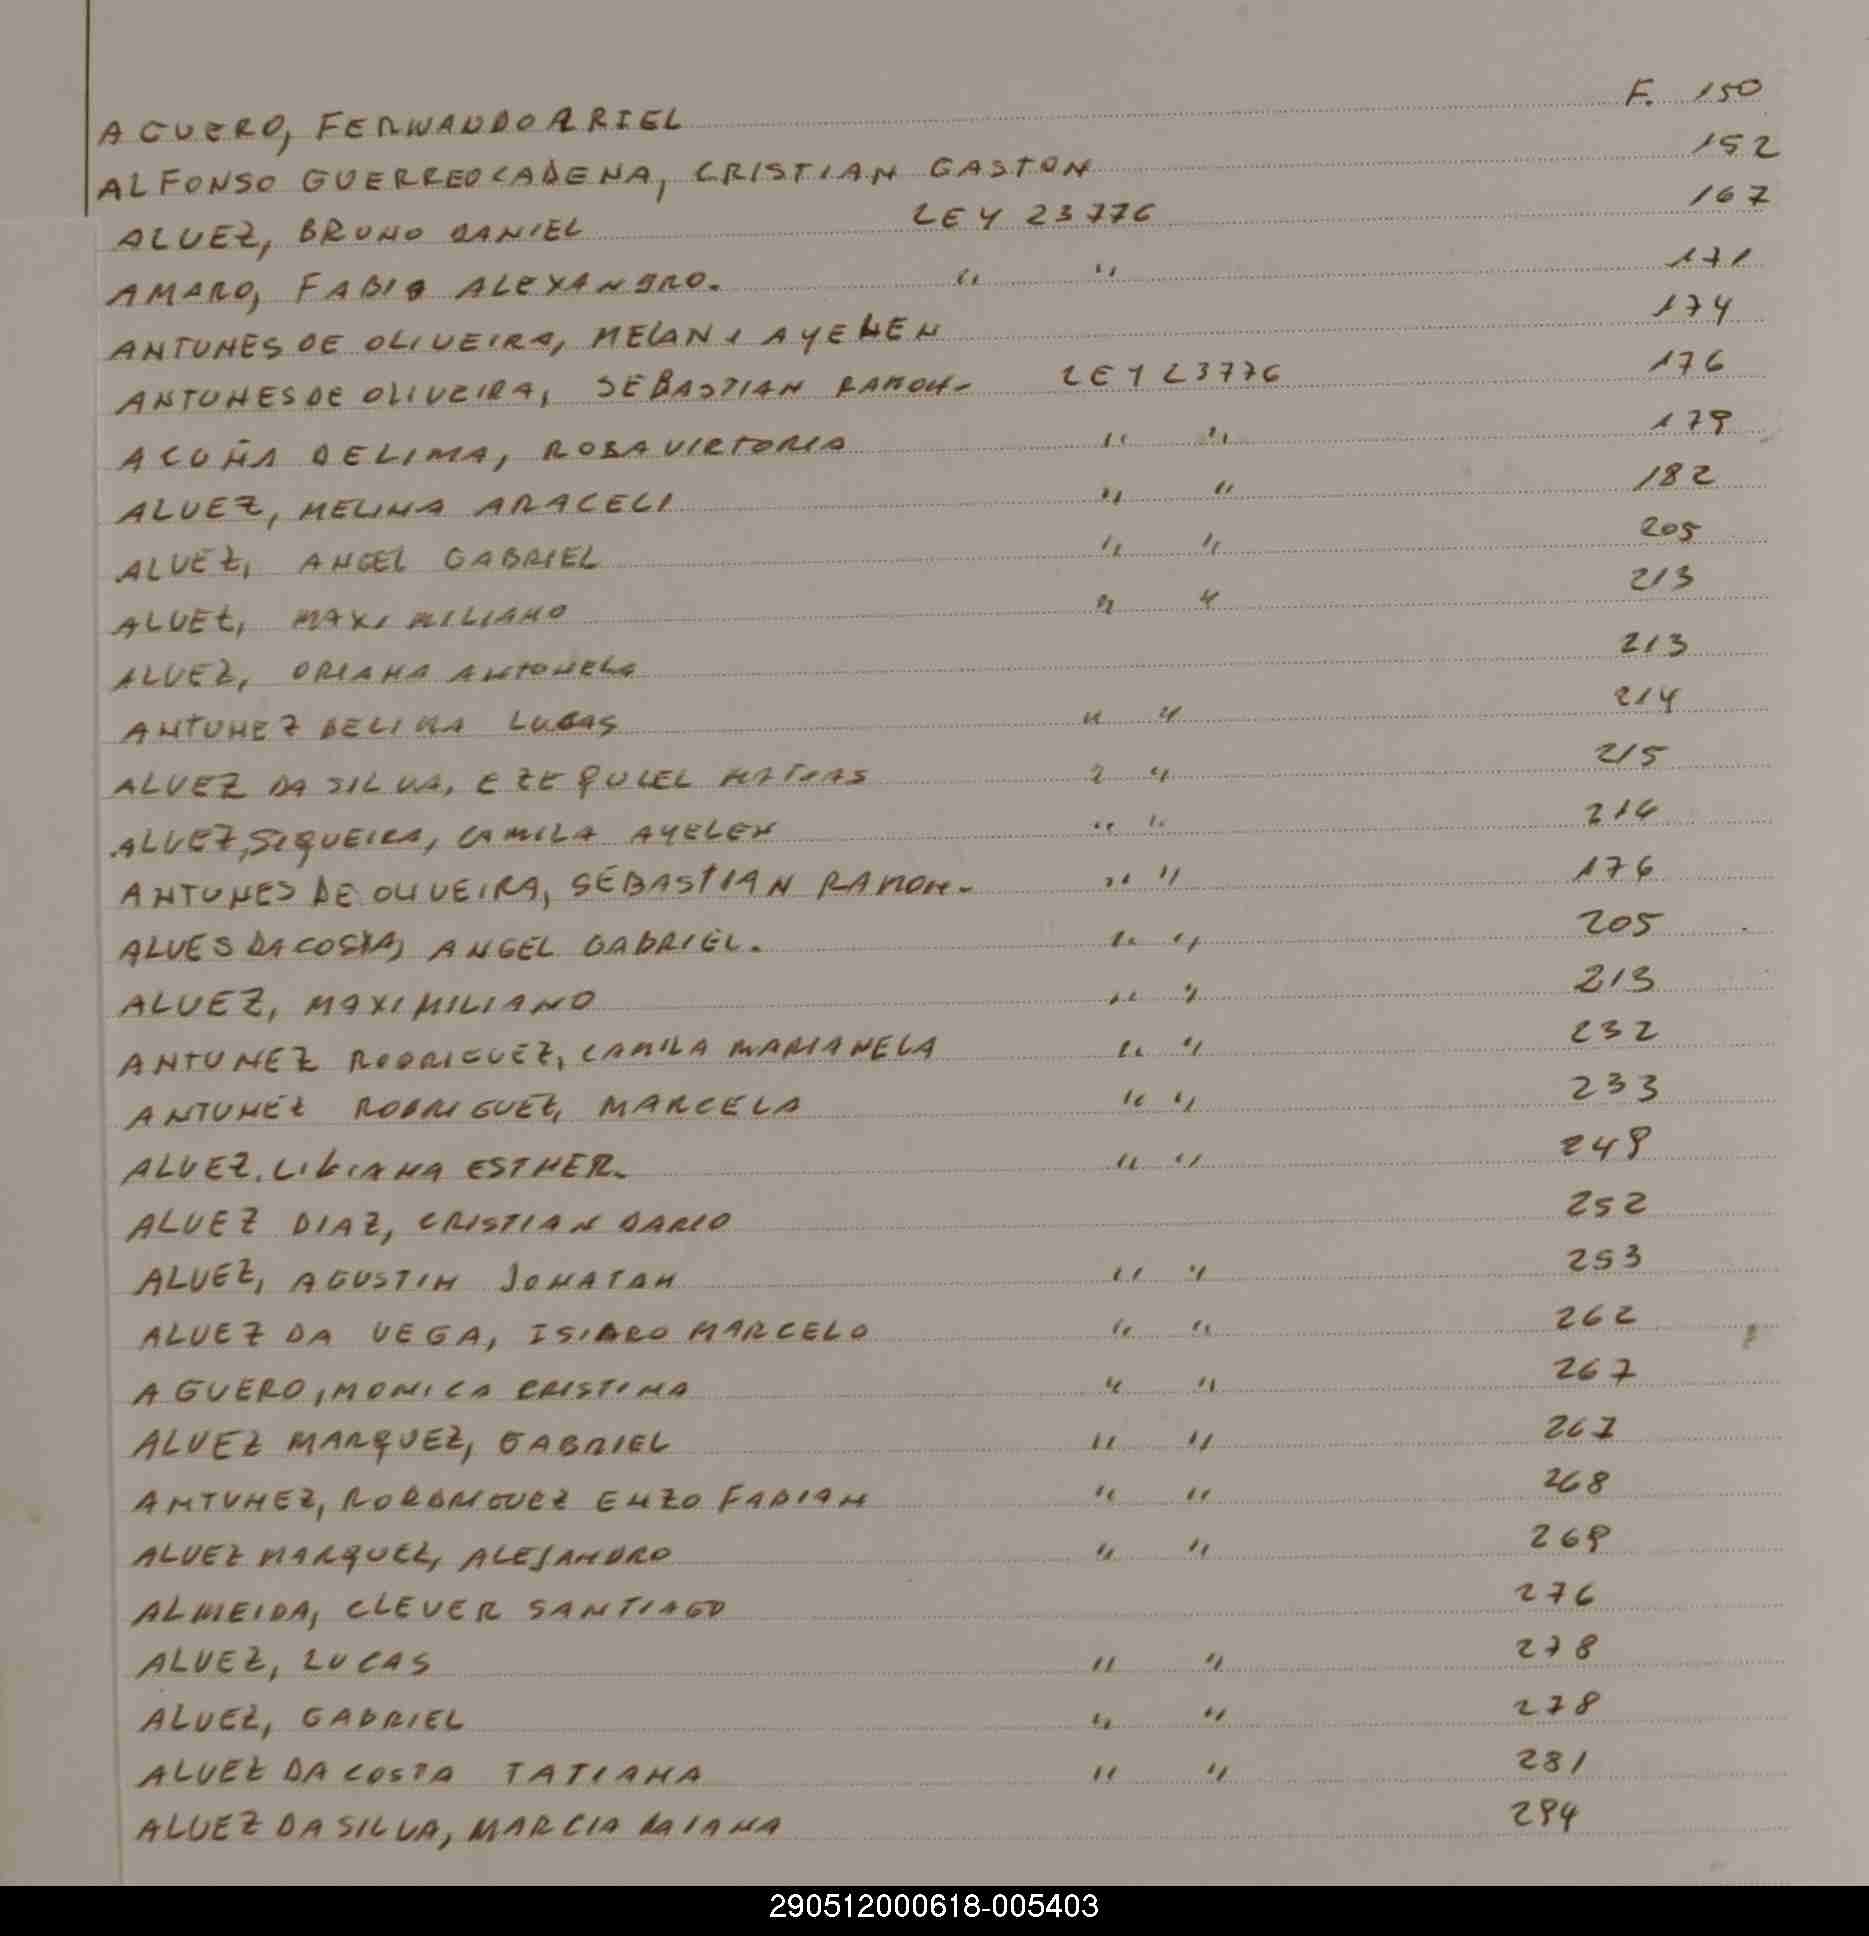 AGUERO, FERNANDO ARIEL F. 150
ALFONSO GUERREO CADENA, CRISTIAN GASTON 152
ALVEZ, BRUNO DANIEL LEY 23776 167
AMARO, FABIO ALEXANDRO. " " 171
ANTUNES DE OLIVEIRA, MELANI AYELEN 174
ANTUNES DE OLIVEIRA, SEBASTIAN RAMON- LEY 23776 176
ACUÑA DE LIMA, ROSA VICTORIA " " 179
ALVEZ, MELINA ARACELI " " 182
ALVEZ, ANGEL GABRIEL " " 205
ALVEZ, MAXIMILIANO " " 213
ALVEZ, ORIANA ANTONELA 213
ANTUNEZ DE LIMA LUCAS " " 214
ALVEZ DA SILVA, EZEQUIEL MATIAS " " 215
ALVEZ, SEQUEIRA, CAMILA AYELEN " " 216
ANTUNES DE OLIVEIRA, SEBASTIAN RAMON- " " 176
ALVES DA COSTA, ANGEL GABRIEL. " " 205
ALVEZ, MAXIMILIANO " " 213
ANTUNEZ RODRIGUEZ, CAMILA MARIANELA " " 232
ANTUNEZ RODRIGUEZ, MARCELA " " 233
ALVEZ. LILIANA ESTHER- " " 249
ALVEZ DIAZ, CRISTIAN DARIO 252
ALVEZ, AGUSTIN JONATAN " " 253
ALVEZ DA VEGA, ISIDRO MARCELO " " 262
AGUERO, MONICA CRISTINA " " 267
ALVEZ MARQUEZ, GABRIEL " " 267
ANTUNEZ, RORDRIGUEZ ENZO FABIAN " " 268
ALVEZ MARQUEZ, ALEJANDRO " " 269
ALMEIDA, CLEVER SANTIAGO 276
ALVEZ, LUCAS " " 278
ALVEZ, GABRIEL " " 278
ALVEZ DA COSTA TATIANA " " 281
ALVEZ DA SILVA, MARCIA DAIANA 294
290512000618-005403